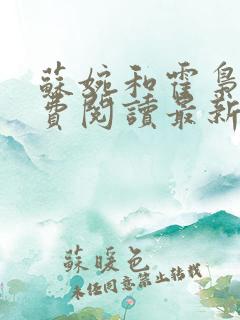 蘇婉和霍梟
費閱讀最新
蘇暖色
未经同意禁止转载